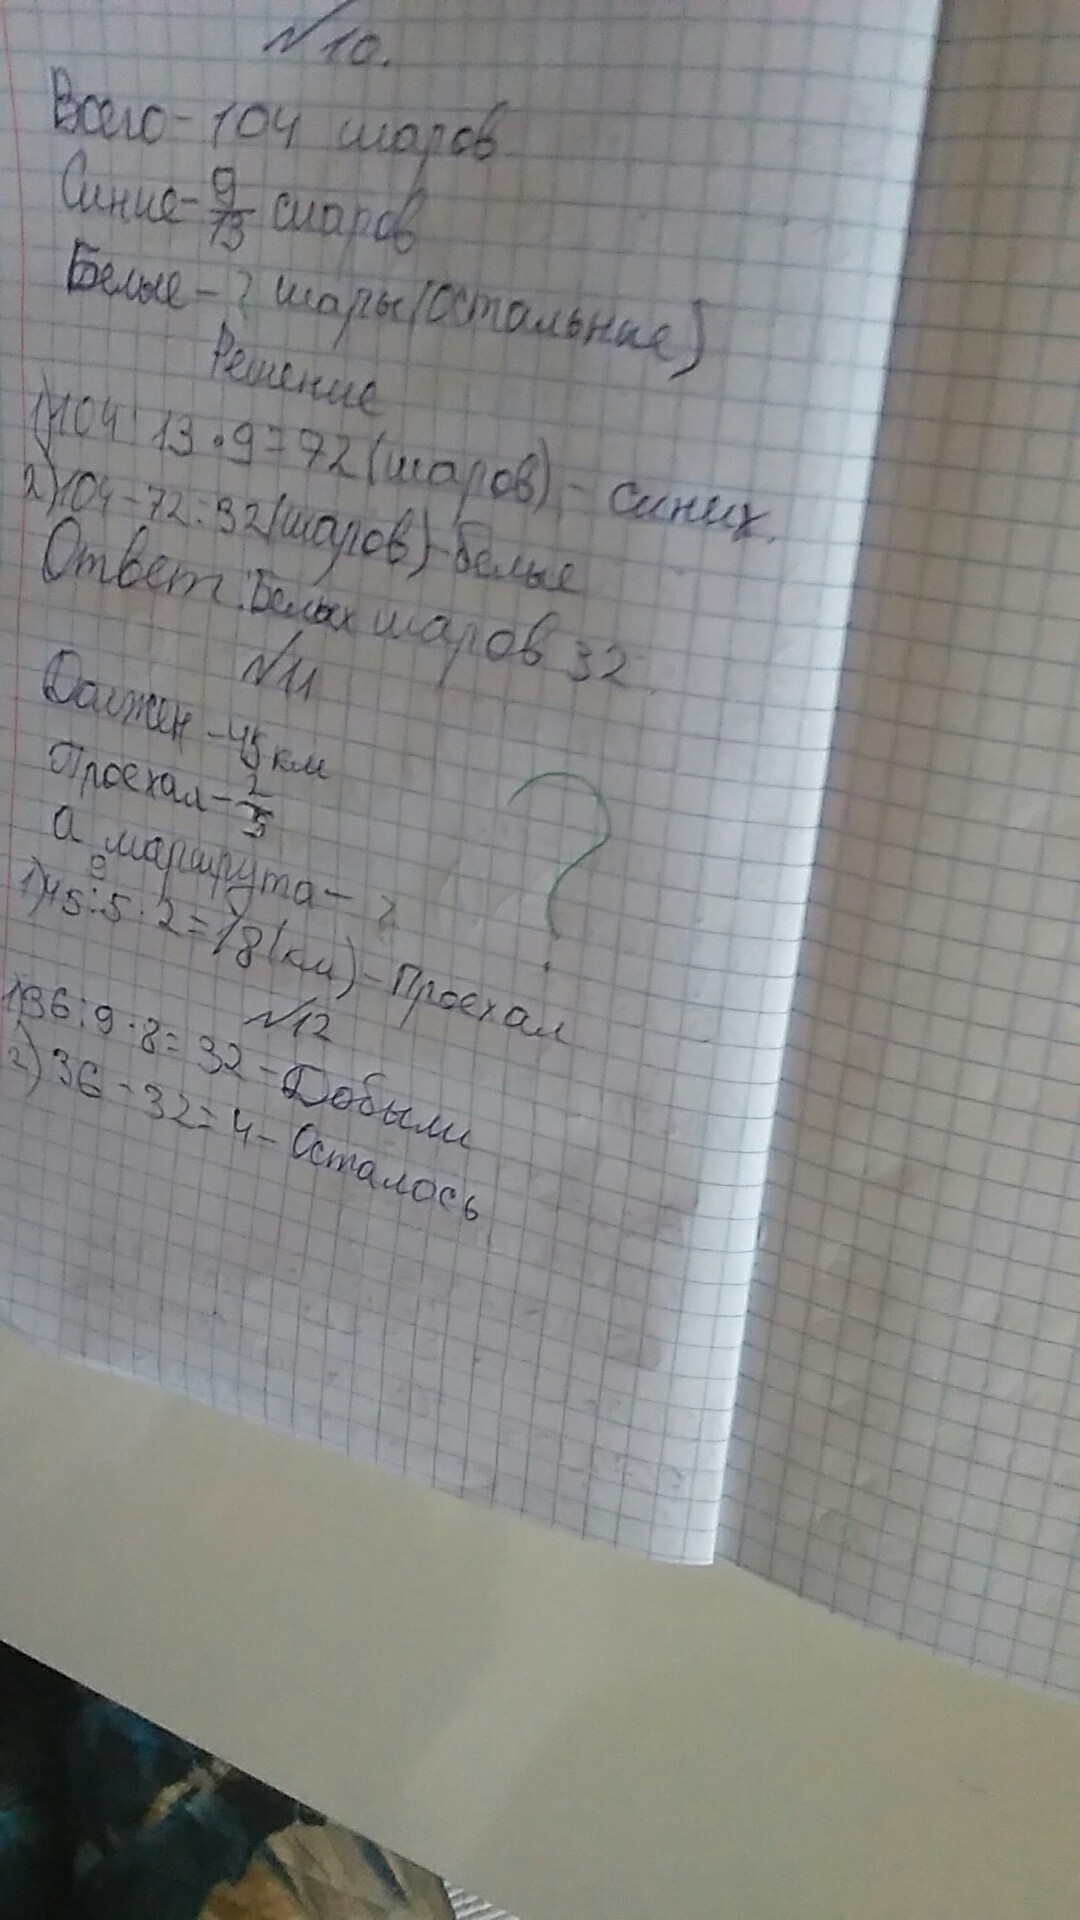 №10.
Всего - 104 шаров
Синие - 9/13 шаров
Белые - ? шары (остальные)
Решение
1) 104 : 13 · 9 = 72 (шаров) - синих.
2) 104 - 72 = 32 (шаров) - белые
Ответ: Белых шаров 32.
№11
Должен - 45 км
Проехал - 2/5
а маршрута - ?
1) 45 : 5 · 2 = 18 (км) - Проехал
?
№12
1) 36 : 9 · 8 = 32 - Добыли
2) 36 - 32 = 4 - Осталось